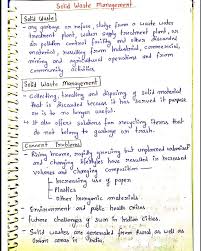 Solid Waste Management
Solid Waste
- any garbage or refuse, sludge from a waste water
treatment plant, water supply treatment plant, or
air pollution control facility and other discarded
material, resulting from industrial, commercial,
mining and agricultural operations and from
community activities.
Solid Waste Management
- Collecting, treating and disposing of solid material
that is discarded because it has served its purpose
or is no longer useful.
It also offers solutions for recycling items that
do not belong to garbage or trash.
Common Problems
- Rising income, rapidly growing but unplanned
and changing lifestyles have resulted in increased
volumes and changing composition
Increasing use of paper
Plastics
Other inorganic materials
Environment and public health
Future challenges of in Indian cities.
Solid wastes are generated from Rural as well as
Urban areas in India.